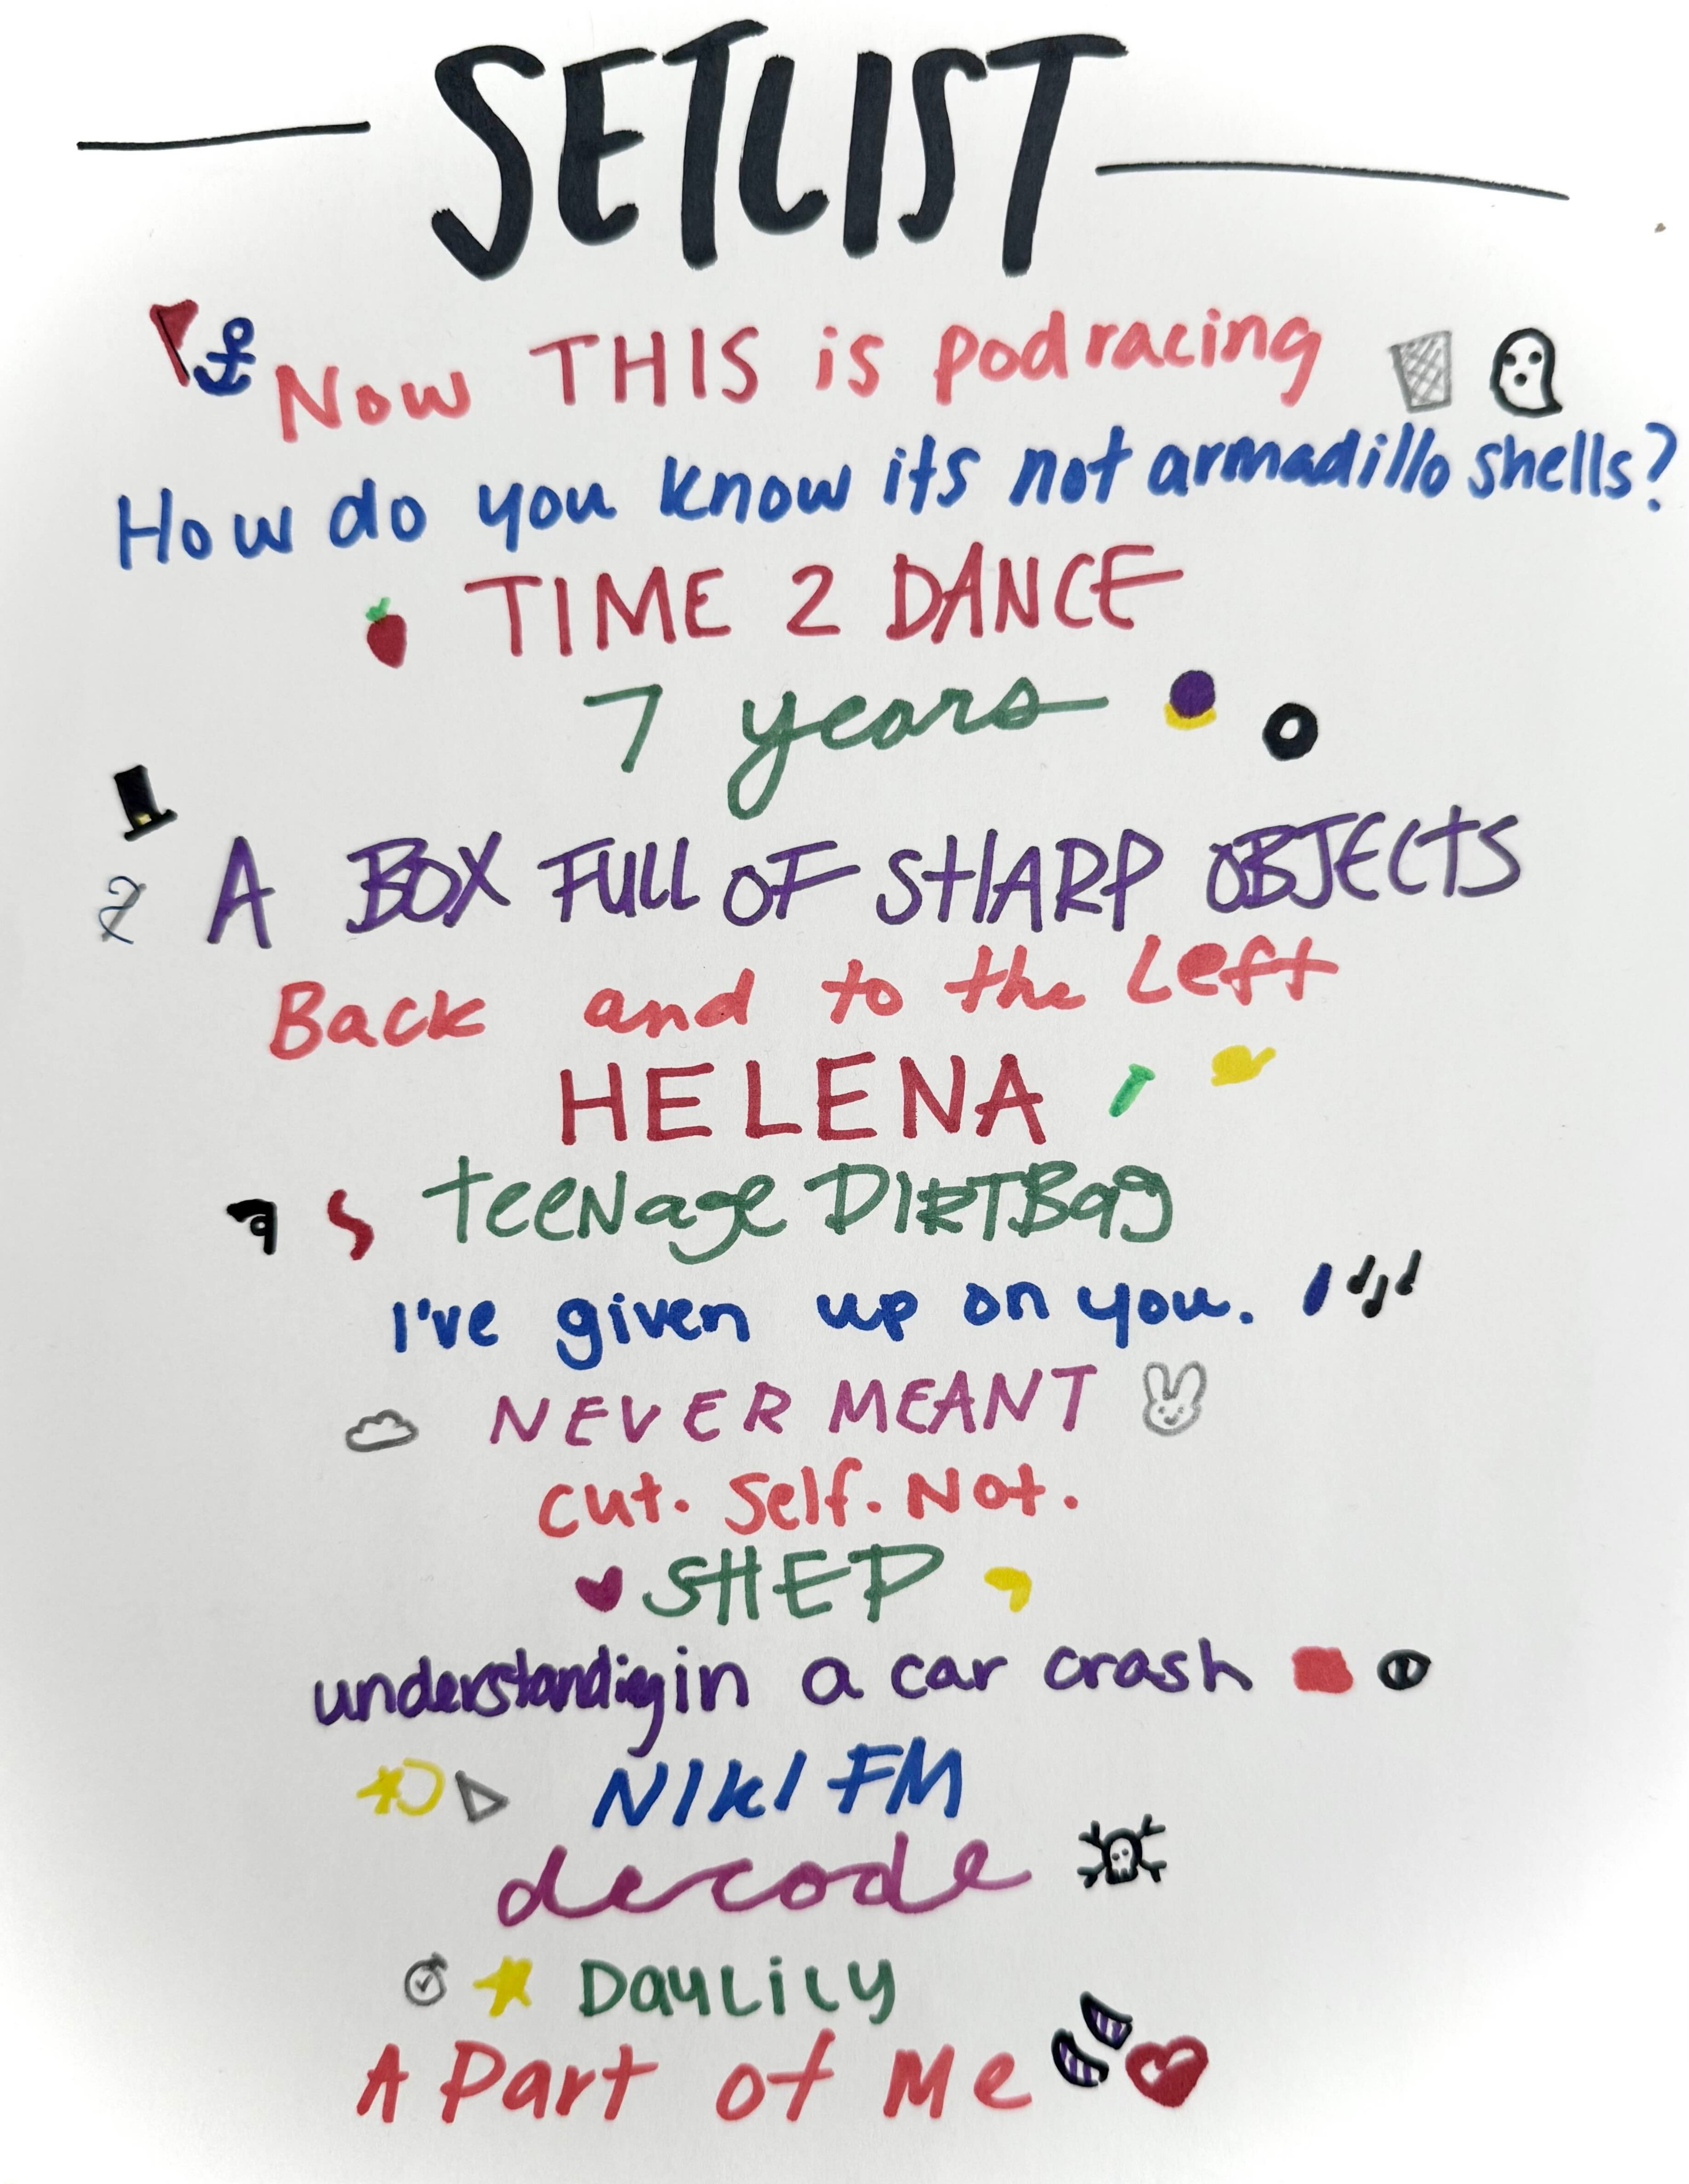 SETLIST
Now THIS is podracing
How do you know its not armadillo shells?
TIME 2 DANCE
7 years
A BOX FULL OF SHARP OBJECTS
Back and to the Left
HELENA
teeNage DIRTBag
I've given up on you.
NEVER MEANT
Cut. Self. Not.
SHEP
understanding in a car crash
NIKI FM
decode
DayLily
A Part of Me